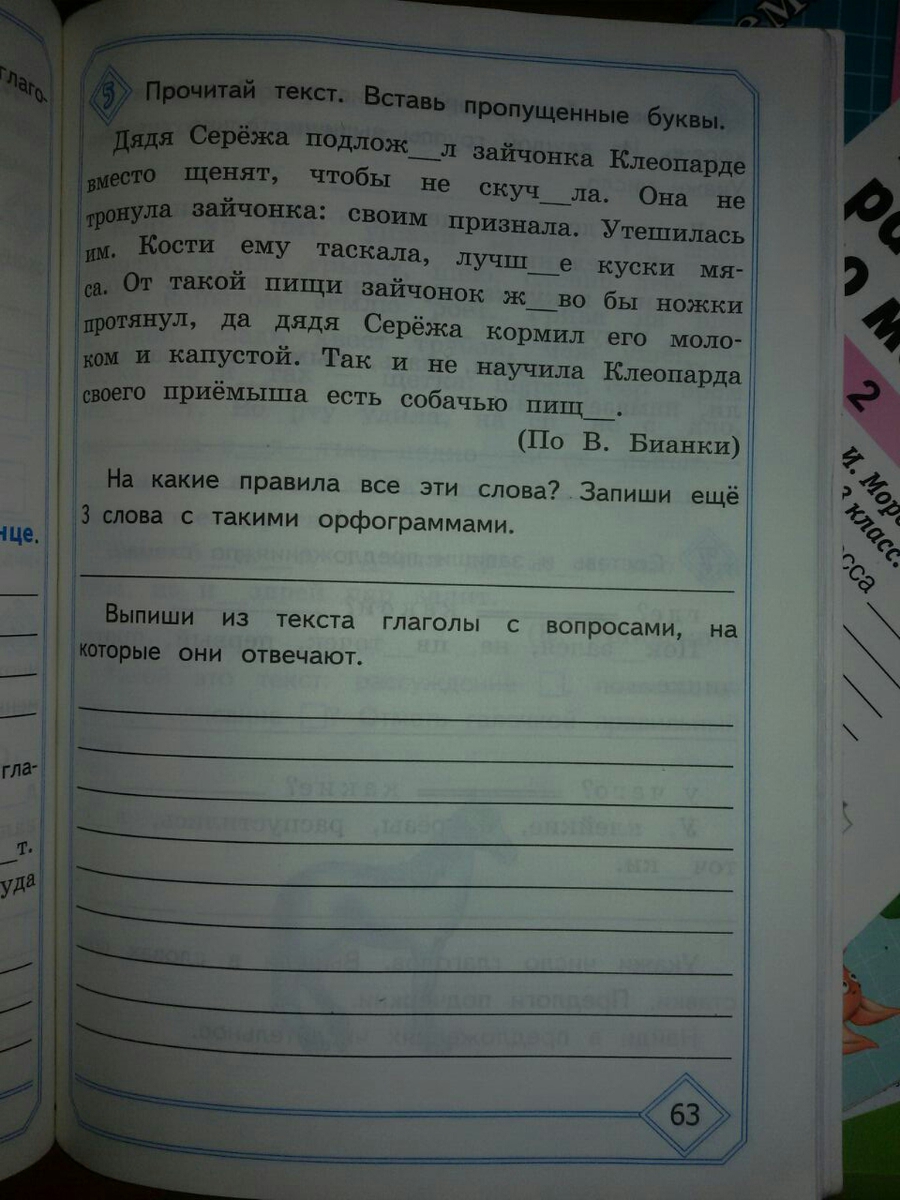 глаго-
5
Прочитай текст. Вставь пропущенные буквы.
Дядя Серёжа подлож__л зайчонка Клеопарде
вместо щенят, чтобы не скуч__ла. Она не
тронула зайчонка: своим признала. Утешилась
им. Кости ему таскала, лучш__е куски мя-
са. От такой пищи зайчонок ж__во бы ножки
протянул, да дядя Серёжа кормил его моло-
ком и капустой. Так и не научила Клеопарда
своего приёмыша есть собачью пищ__.
(По В. Бианки)
На какие правила все эти слова? Запиши ещё
3 слова с такими орфограммами.
Выпиши из текста глаголы с вопросами, на
которые они отвечают.
63
нце.
гла-
__т.
уда
2
И. Моро
класс.
сса